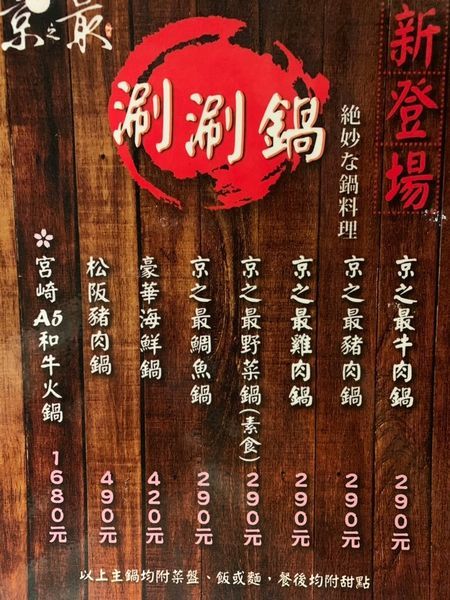 京之最
新登場
涮涮鍋
絶妙な鍋料理
京之最牛肉鍋 290元
京之最豬肉鍋 290元
京之最雞肉鍋 290元
京之最野菜鍋(素食) 290元
京之最鯛魚鍋 290元
豪華海鮮鍋 420元
松阪豬肉鍋 490元
宮崎A5和牛火鍋 1680元
以上主鍋均附菜盤、飯或麵，餐後均附甜點